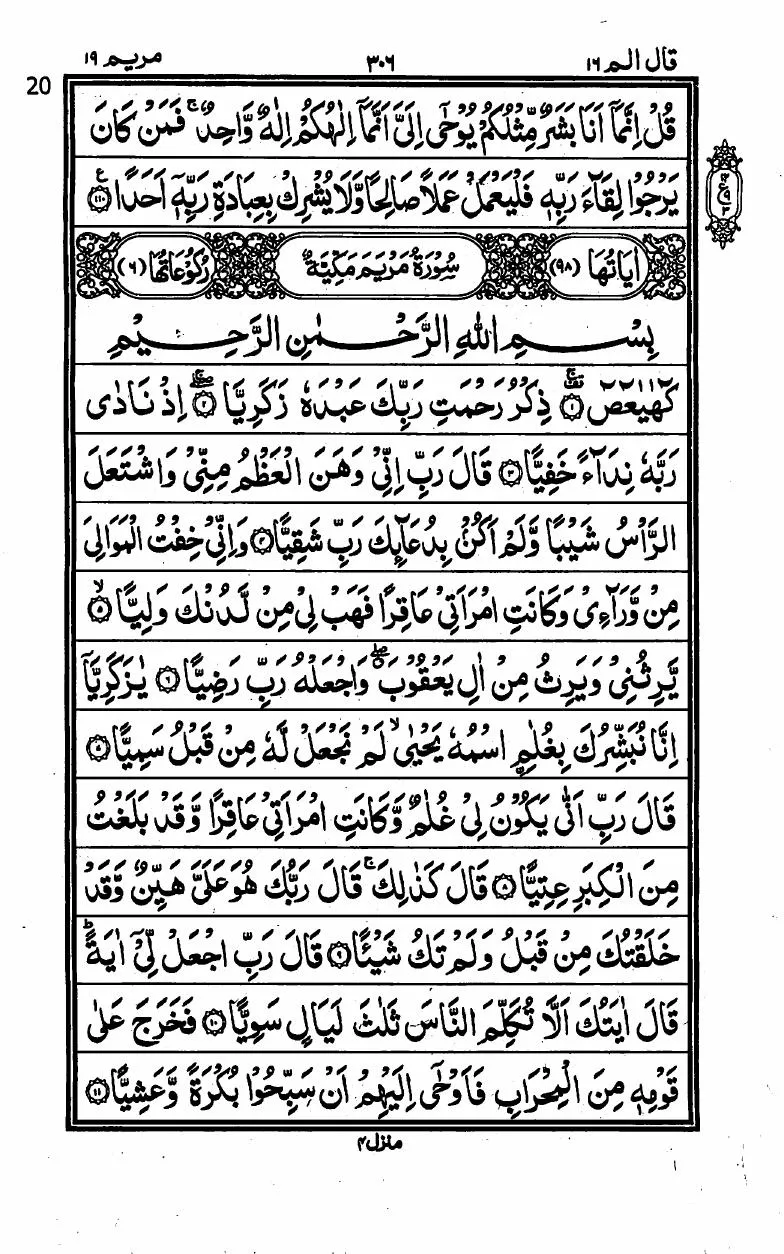 قال الم ١٦ ٣٠٦ مريم ١٩
20
قُلْ اِنَّمَاۤ اَنَا بَشَرٌ مِّثْلُكُمْ يُوْحٰۤى اِلَیَّ اَنَّمَاۤ اِلٰهُكُمْ اِلٰهٌ وَّاحِدٌ ۚ فَمَنْ كَانَ
يَرْجُوْا لِقَآءَ رَبِّهٖ فَلْيَعْمَلْ عَمَلًا صَالِحًا وَّلَا يُشْرِكْ بِعِبَادَةِ رَبِّهٖۤ اَحَدًا ﴿١١٠﴾ ع
اٰيَاتُهَا (٩٨) سُوْرَةُ مَرْيَمَ مَكِّيَّةٌ رُكُوْعَاتُهَا (٦)
بِسْمِ اللّٰهِ الرَّحْمٰنِ الرَّحِيْمِ
كٓهٰيٰعٓصٓ ﴿١﴾ ذِكْرُ رَحْمَتِ رَبِّكَ عَبْدَهٗ زَكَرِيَّا ﴿٢﴾ اِذْ نَادٰى
رَبَّهٗ نِدَآءً خَفِيًّا ﴿٣﴾ قَالَ رَبِّ اِنِّیْ وَهَنَ الْعَظْمُ مِنِّیْ وَاشْتَعَلَ
الرَّاْسُ شَيْبًا وَّلَمْ اَكُنْۢ بِدُعَآئِكَ رَبِّ شَقِيًّا ﴿٤﴾ وَاِنِّیْ خِفْتُ الْمَوَالِیَ
مِنْ وَّرَآءِیْ وَكَانَتِ امْرَاَتِیْ عَاقِرًا فَهَبْ لِیْ مِنْ لَّدُنْكَ وَلِيًّا ۙ﴿٥﴾
يَّرِثُنِیْ وَيَرِثُ مِنْ اٰلِ يَعْقُوْبَ ۖ وَاجْعَلْهُ رَبِّ رَضِيًّا ﴿٦﴾ يٰزَكَرِيَّاۤ
اِنَّا نُبَشِّرُكَ بِغُلٰمِ ِ۟اسْمُهٗ يَحْيٰى ۙ لَمْ نَجْعَلْ لَّهٗ مِنْ قَبْلُ سَمِيًّا ﴿٧﴾
قَالَ رَبِّ اَنّٰى يَكُوْنُ لِیْ غُلٰمٌ وَّكَانَتِ امْرَاَتِیْ عَاقِرًا وَّقَدْ بَلَغْتُ
مِنَ الْكِبَرِ عِتِيًّا ﴿٨﴾ قَالَ كَذٰلِكَ ۚ قَالَ رَبُّكَ هُوَ عَلَیَّ هَيِّنٌ وَّقَدْ
خَلَقْتُكَ مِنْ قَبْلُ وَلَمْ تَكُ شَيْئًا ﴿٩﴾ قَالَ رَبِّ اجْعَلْ لِّیْۤ اٰيَةً ؕ
قَالَ اٰيَتُكَ اَلَّا تُكَلِّمَ النَّاسَ ثَلٰثَ لَيَالٍ سَوِيًّا ﴿١٠﴾ فَخَرَجَ عَلٰى
قَوْمِهٖ مِنَ الْمِحْرَابِ فَاَوْحٰۤى اِلَيْهِمْ اَنْ سَبِّحُوْا بُكْرَةً وَّعَشِيًّا ﴿١١﴾
منزل ٤